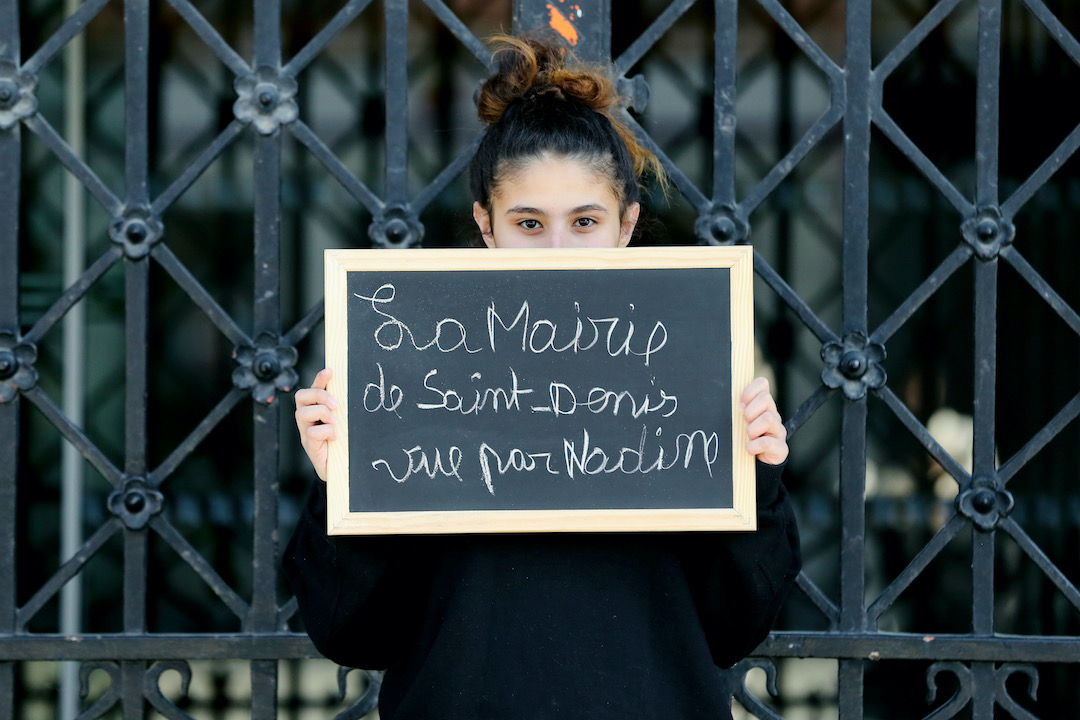 La Mairie
de Saint-Denis
vue par Nadine